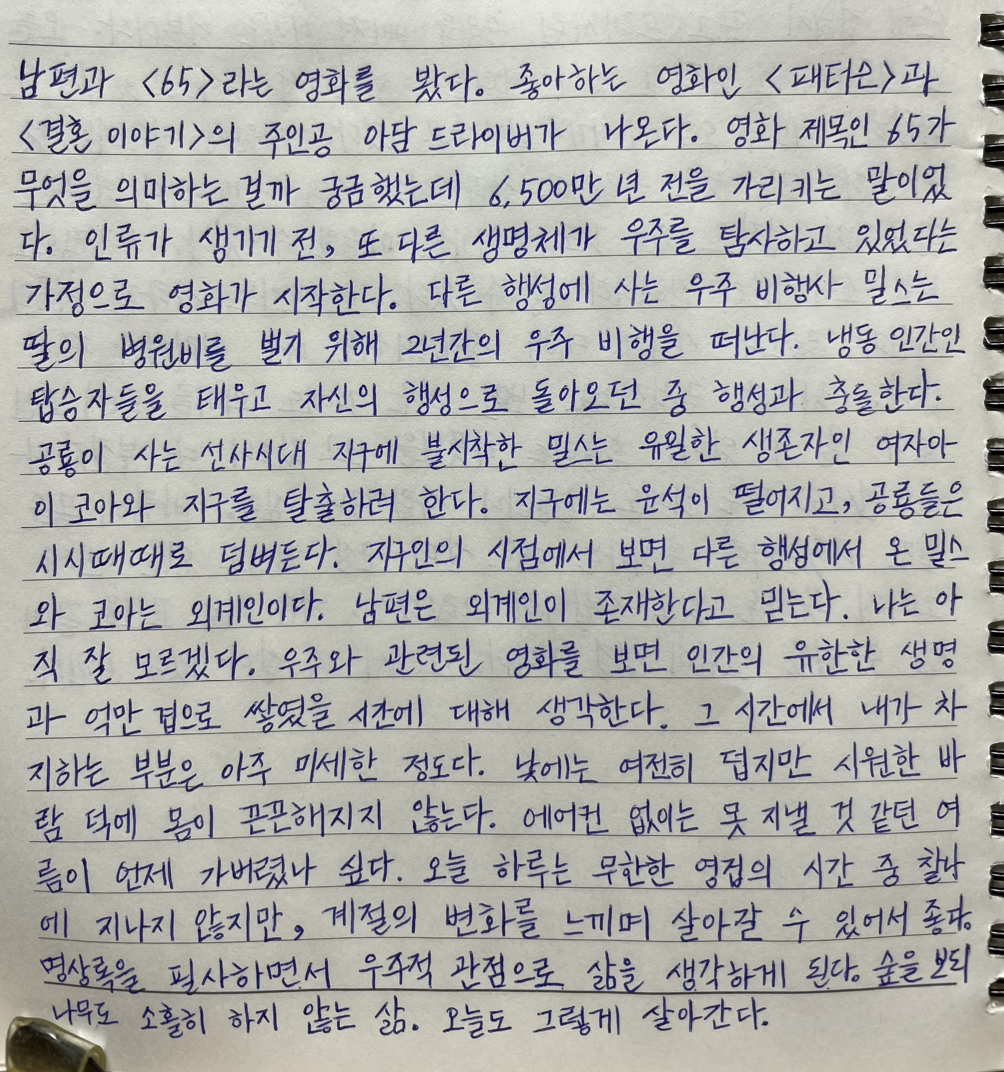 남편과 <65>라는 영화를 봤다. 좋아하는 영화인 <패터슨>과
<결혼 이야기>의 주인공 아담 드라이버가 나온다. 영화 제목인 65가
무엇을 의미하는 걸까 궁금했는데 6,500만 년 전을 가리키는 말이었
다. 인류가 생기기 전, 또 다른 생명체가 우주를 탐사하고 있었다는
가정으로 영화가 시작한다. 다른 행성에 사는 우주 비행사 밀스는
딸의 병원비를 벌기 위해 2년간의 우주 비행을 떠난다. 냉동 인간인
탑승자들을 태우고 자신의 행성으로 돌아오던 중 행성과 충돌한다.
공룡이 사는 선사시대 지구에 불시착한 밀스는 유일한 생존자인 여자아
이 코아와 지구를 탈출하려 한다. 지구에는 운석이 떨어지고, 공룡들은
시시때때로 덤벼든다. 지구인의 시점에서 보면 다른 행성에서 온 밀스
와 코아는 외계인이다. 남편은 외계인이 존재한다고 믿는다. 나는 아
직 잘 모르겠다. 우주와 관련된 영화를 보면 인간의 유한한 생명
과 억만 겁으로 쌓였을 시간에 대해 생각한다. 그 시간에서 내가 차
지하는 부분은 아주 미세한 정도다. 낮에는 여전히 덥지만 시원한 바
람 덕에 몸이 끈끈해지지 않는다. 에어컨 없이는 못 지낼 것 같던 여
름이 언제 가버렸나 싶다. 오늘 하루는 무한한 영겁의 시간 중 찰나
에 지나지 않지만, 계절의 변화를 느끼며 살아갈 수 있어서 좋다.
명상록을 필사하면서 우주적 관점으로 삶을 생각하게 된다. 숲을 보되
나무도 소홀히 하지 않는 삶. 오늘도 그렇게 살아간다.